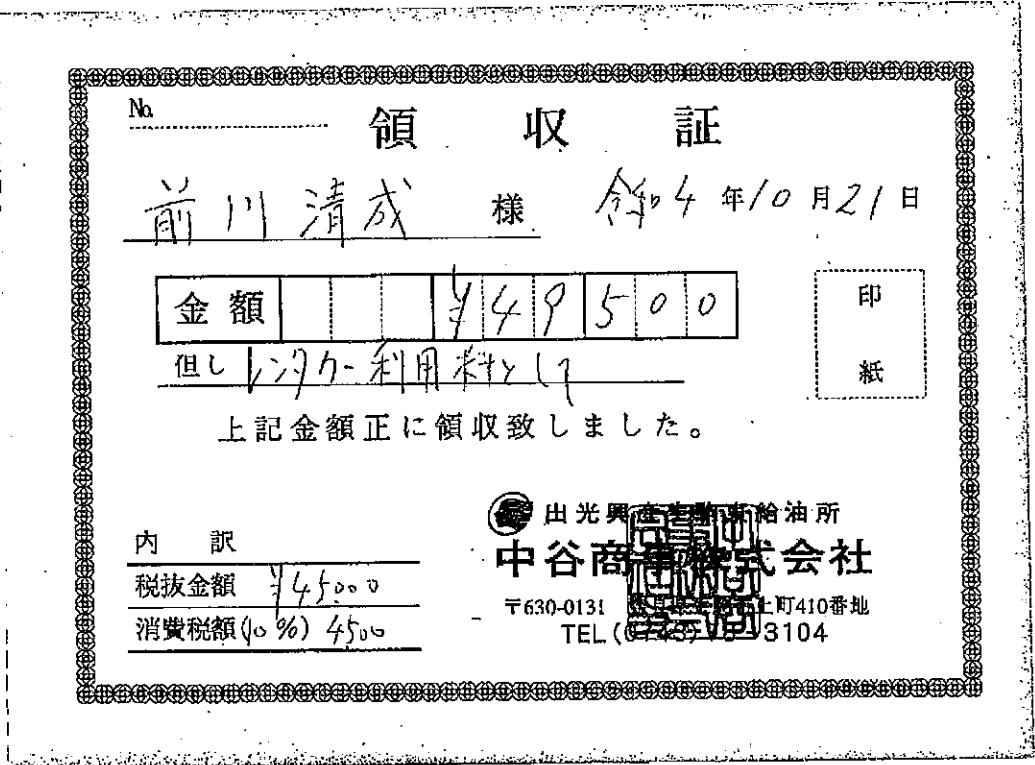 No.
領収証
前川清成 様 令和4年10月21日
金額 ¥49500
但し レンタカー利用料として
上記金額正に領収致しました。
印
紙
内訳
税抜金額 ¥45000
消費税額(10%) 4500
出光興産 給油所
中谷商事株式会社
〒630-0131 上町410番地
TEL(0743) 3104